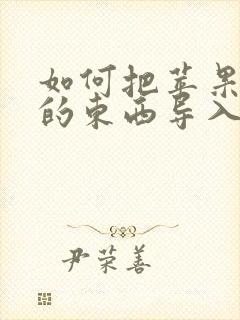 如何把苹果
的东西导入
尹荣善